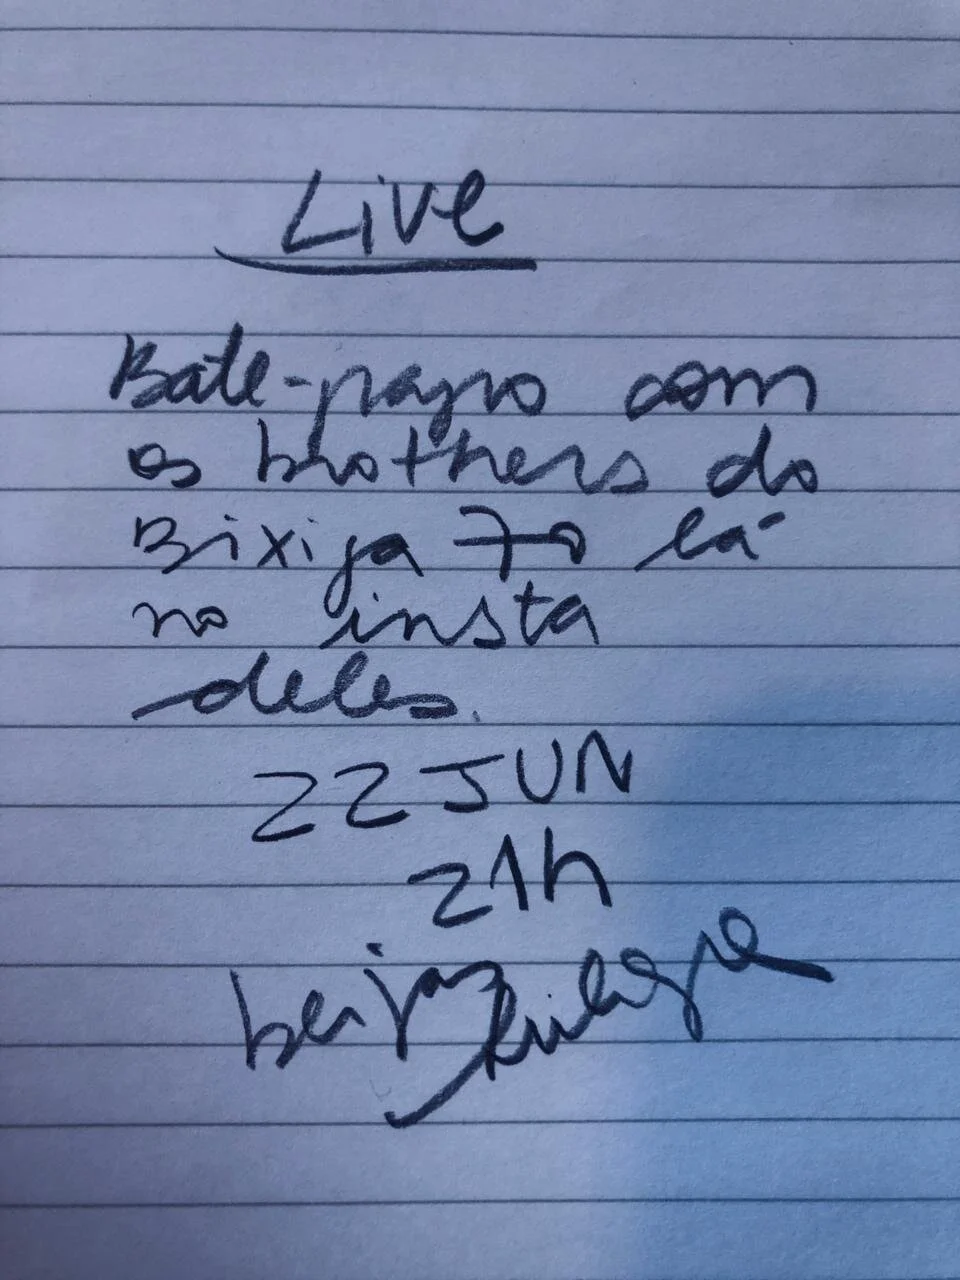 Live
Bate-papo com
os brothers do
Bixiga 70 lá
no insta
deles.
22 JUN
21h
beijos